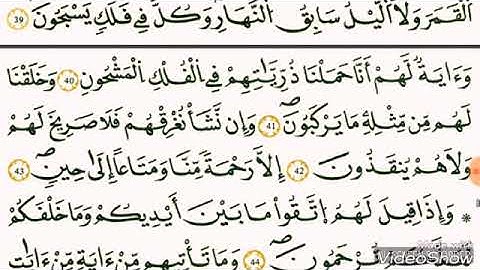 اَ۬لْقَمَرَ وَلَا اَ۬ليْلُ سَابِقُ اُ۬لنَّهارِ وَكُلٌّ فِے فَلَكٍ يَسْبَحُونَۖ 39
وَءَايَةٌ لَّهُمُۥٓ أَنَّا حَمَلْنَا ذُرِّيَّٰتِهِمْ فِے اِ۬لْفُلْكِ اِ۬لْمَشْحُونِ 40 وَخَلَقْنَا
لَهُم مِّن مِّثْلِهِۦ مَا يَرْكَبُونَۖ 41 وَإِن نَّشَأْ نُغْرِقْهُمْ فَلَا صَرِيخَ لَهُمْ
وَلَا هُمْ يُنقَذُونَ 42 إِلَّا رَحْمَةً مِّنَّا وَمَتَٰعاً اِلَىٰ حِينٍۖ 43
۞ وَإِذَا قِيلَ لَهُمُ اُ۪تَّقُواْ مَا بَيْنَ أَيْدِيكُمْ وَمَا خَلْفَكُمْ
تُرْحَمُونَۖ 44 وَمَا تَأْتِيهِم مِّنَ ايَةٍ مِّنَ ايَٰتِ
Made with
VideoShow